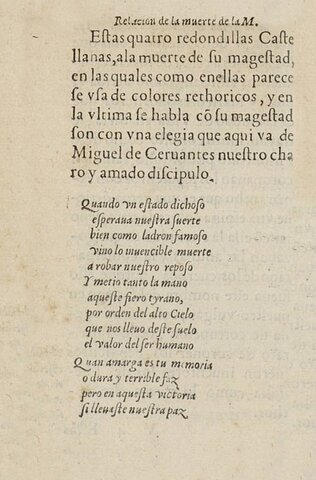 Relacion de la muerte de la M.
Estas quatro redondillas Caste
llanas, a la muerte de su magestad,
en las quales como en ellas parece
se vsa de colores rethoricos, y en
la vltima se habla cõ su magestad
son con vna elegia que aqui va de
Miguel de Ceruantes nuestro cha
ro y amado discipulo.
Quando vn estado dichoso
esperaua nuestra suerte
bien como ladron famoso
vino lo inuencible muerte
a robar nuestro reposo
Y metio tanto la mano
aqueste fiero tyrano,
por orden del alto Cielo
que nos lleuo deste suelo
el valor del ser humano
Quan amarga es tu memoria
o dura y terrible faz
pero en aquesta victoria
si lleuaste nuestra paz